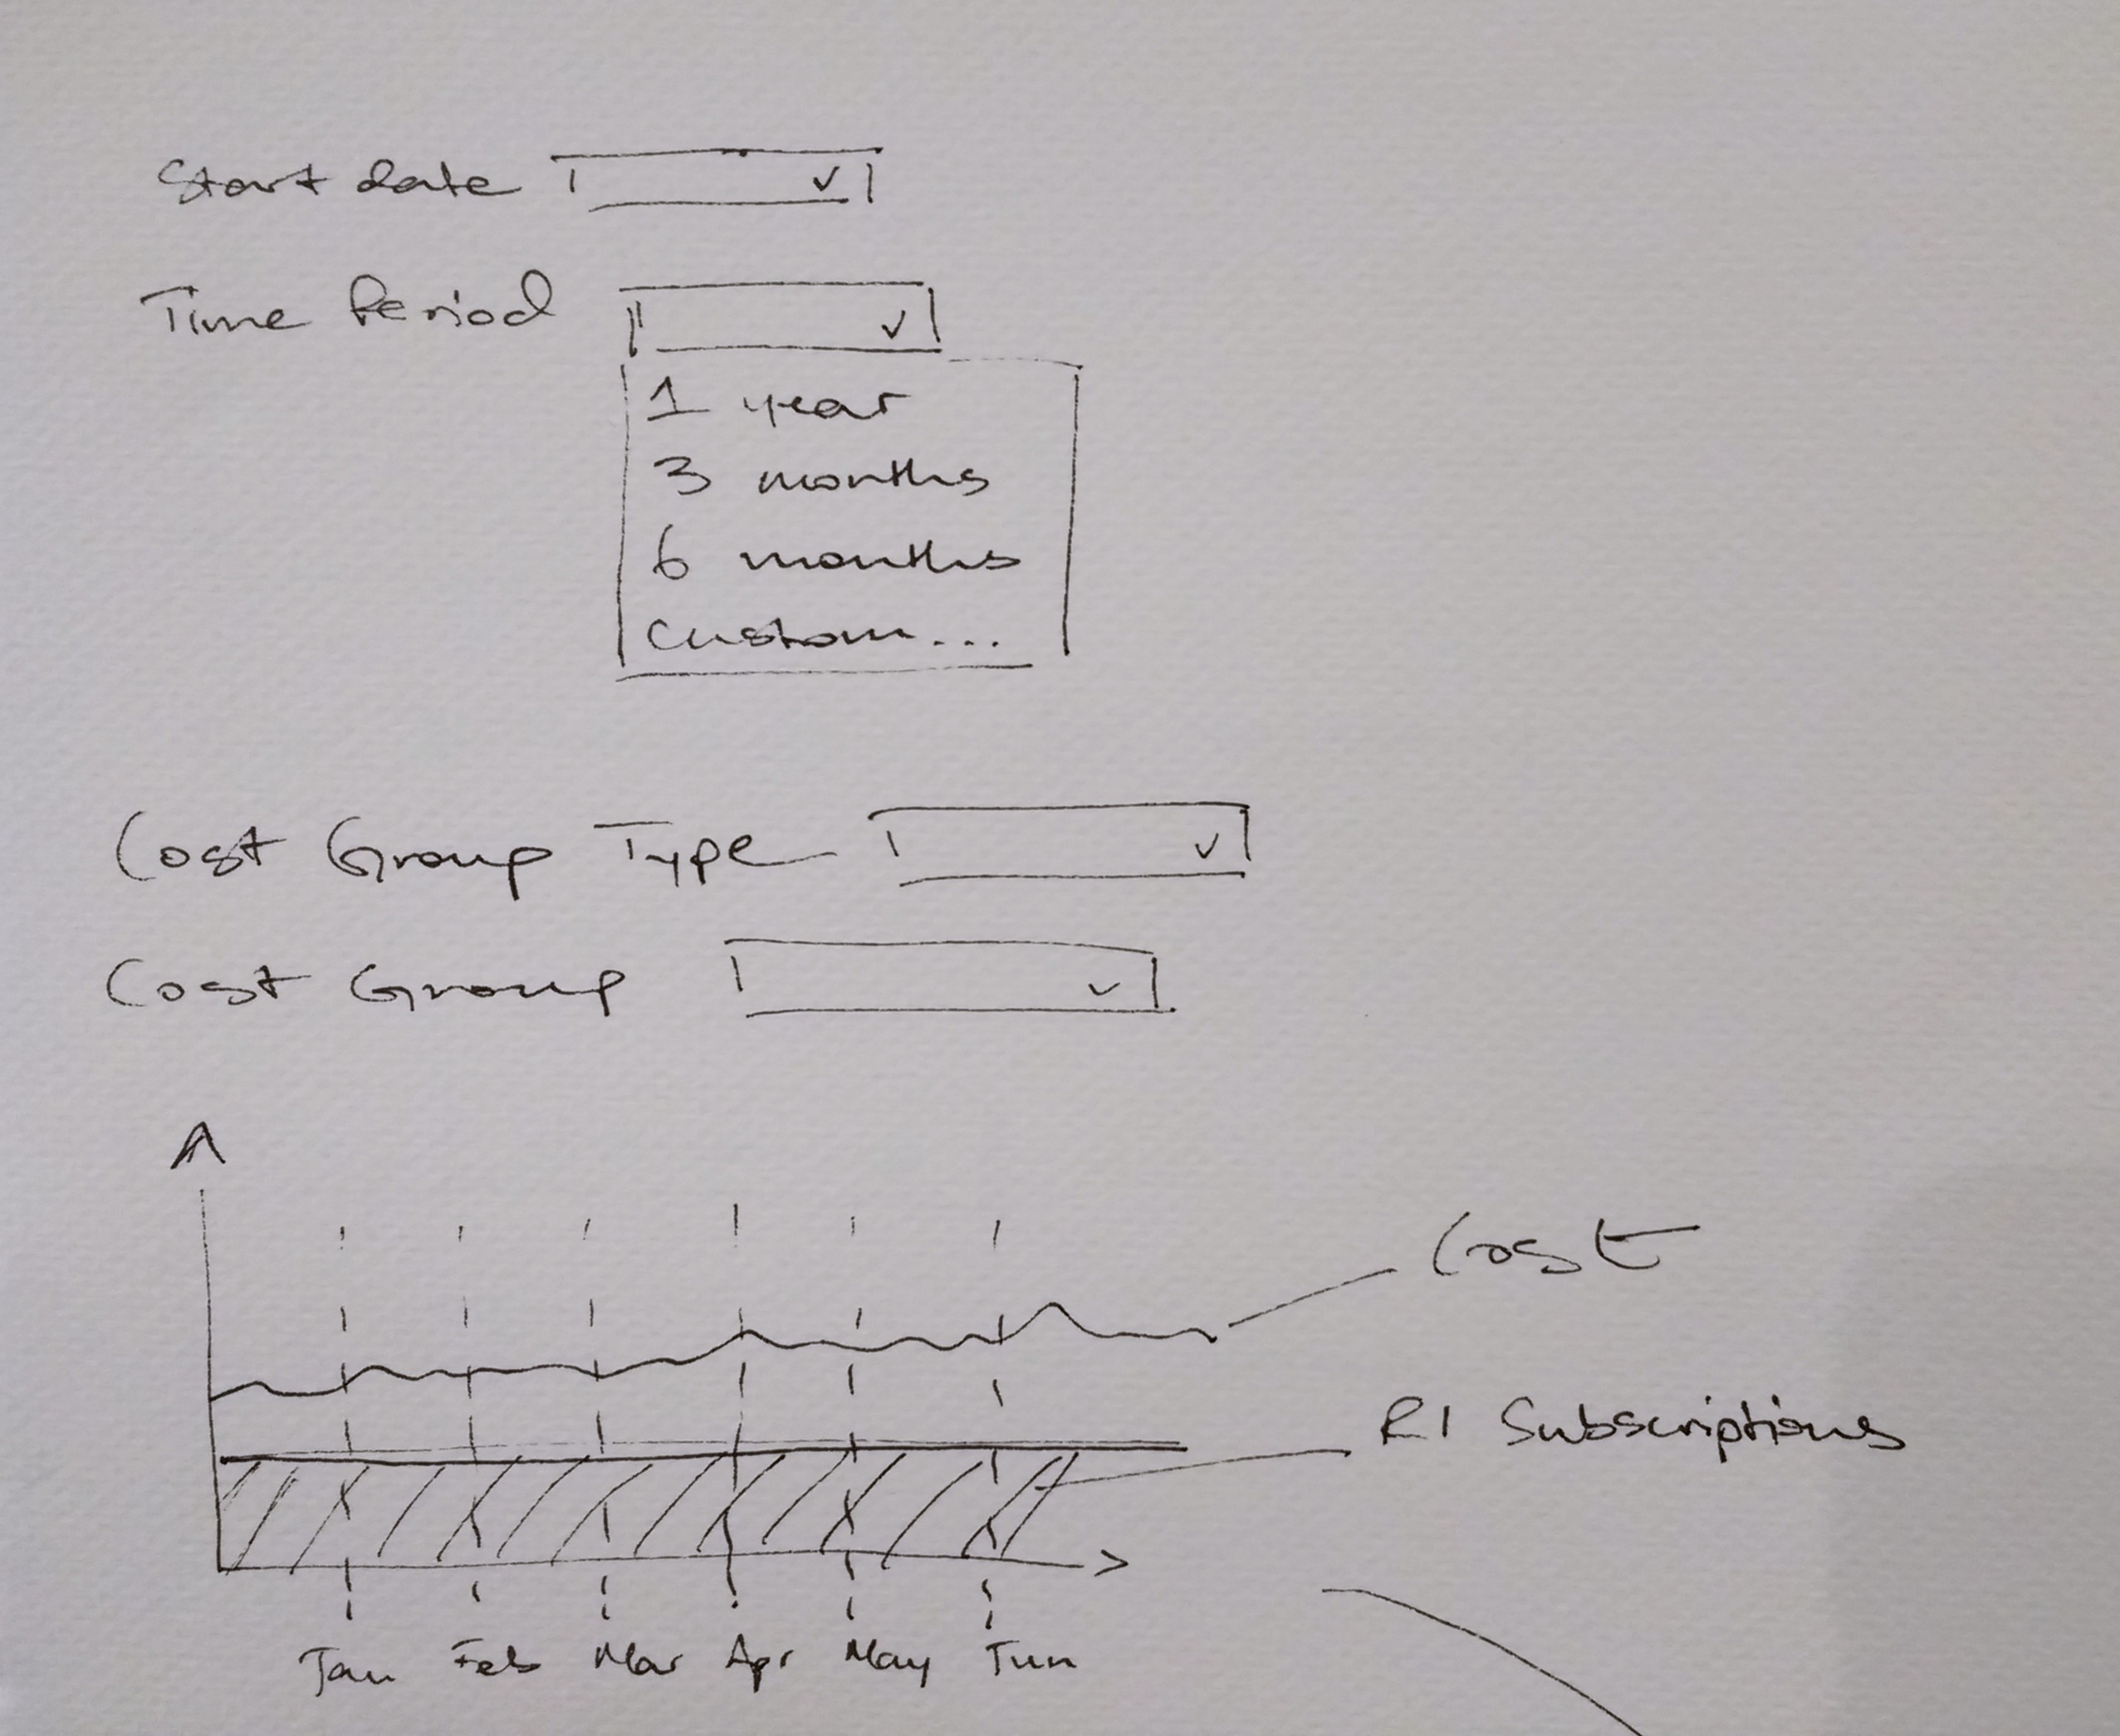 Start date
Time Period
1 year
3 months
6 months
Custom...
Cost Group Type
Cost Group
Cost
RI Subscriptions
Jan Feb Mar Apr May Jun